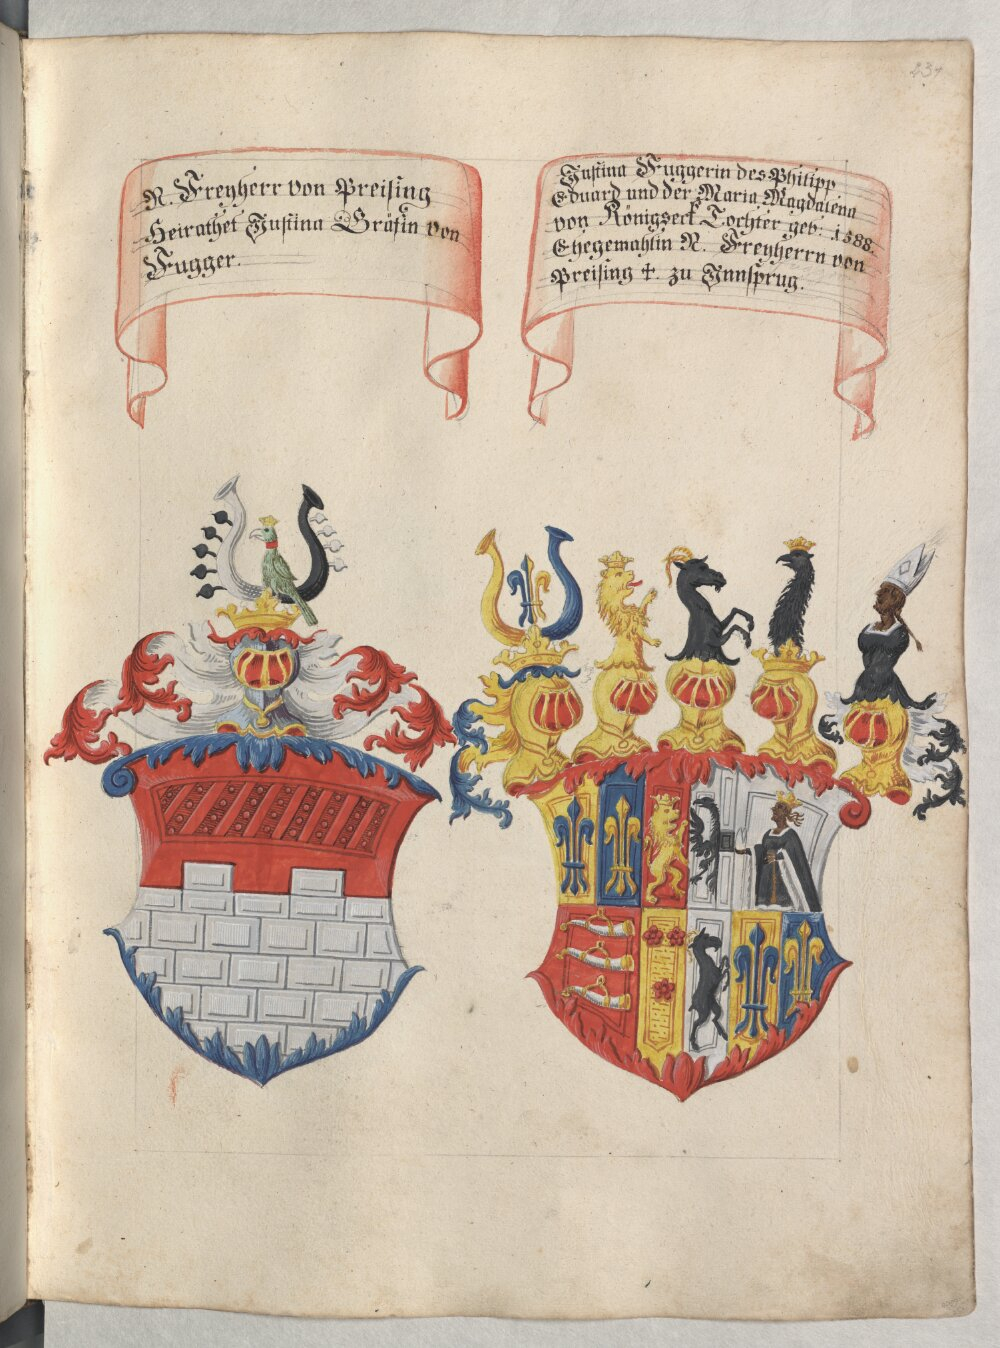 234
N. Freyherr von Preising
Heirathet Justina Gräfin von
Fugger.
Justina Fuggerin des Philipp
Eduard und der Maria Magdalena
von Königseck Tochter geb: 1588.
Ehegemahlin N. Freyherrn von
Preising †. zu Ynnsprug.